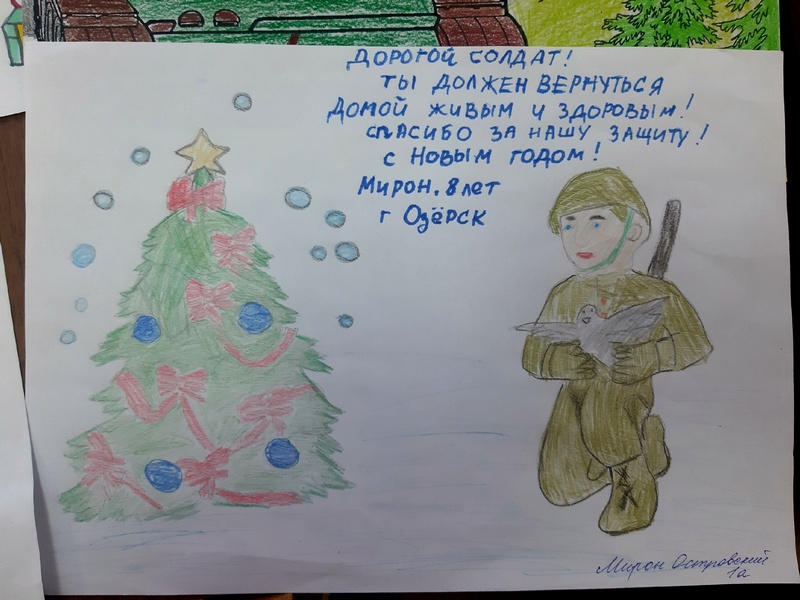 ДОРОГОЙ СОЛДАТ!
ТЫ ДОЛЖЕН ВЕРНУТЬСЯ
ДОМОЙ ЖИВЫМ И ЗДОРОВЫМ!
СПАСИБО ЗА НАШУ ЗАЩИТУ!
С НОВЫМ ГОДОМ!
Мирон, 8 лет
г Озёрск
Мирон Островский
1а